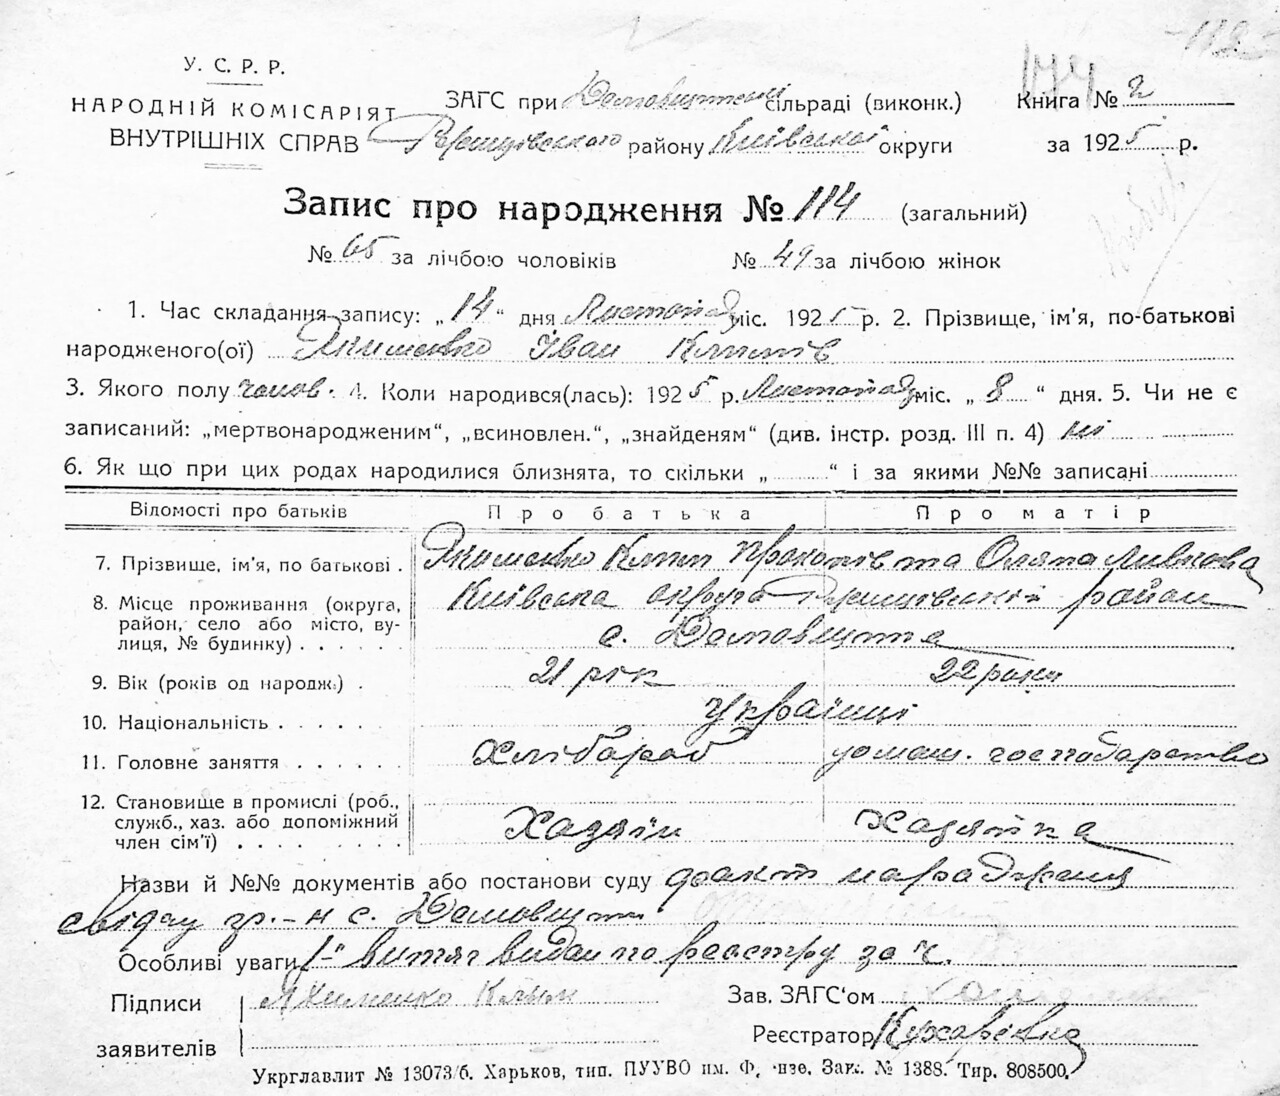 -112-
174
У. С. Р. Р.
НАРОДНІЙ КОМІСАРІЯТ
ВНУТРІШНІХ СПРАВ
ЗАГС при сільраді (виконк.)
Ржищівського району Київської округи
Книга № 2
за 1925 р.
Запис про народження № 114 (загальний)
№ 65 за лічбою чоловіків № 49 за лічбою жінок
1. Час складання запису: „ 14 “ дня Листопад міс. 1925 р. 2. Прізвище, ім'я, по-батькові
народженого(ої) Якименко Іван Климів
3. Якого полу чолов. 4. Коли народився(лась): 1925 р. Листопад міс. „ 8 “ дня. 5. Чи не є
записаний: „мертвонародженим“, „всиновлен.“, „знайденям“ (див. інстр. розд. III п. 4) ні
6. Як що при цих родах народилися близнята, то скільки „ “ і за якими №№ записані
Відомості про батьків Про батька Про матір
7. Прізвище, ім'я, по батькові . Якименко Клим Прокопів та
8. Місце проживання (округа, район, село або місто, вулиця, № будинку) . . . . . . Київська округа Ржищівський район
с.
9. Вік (років од народж.) . 21 рік 22 роки
10. Національність . . . . . Українці
11. Головне заняття . . . . . . Хлібороб домаш. господарство
12. Становище в промислі (роб., служб., хаз. або допоміжний член сім'ї) . . . . . . . . Хазяїн Хазяйка
Назви й №№ документів або постанови суду факт народження
свідчу гр.-н с.
Особливі уваги 1- витяг видан по реєстру за ч.
Підписи заявителів Якименко Клим
Зав. ЗАГС'ом
Реєстратор
Укрглавліт № 13073/б. Харьков, тип. ПУУВО им. Ф. Зак. № 1388. Тир. 808500.